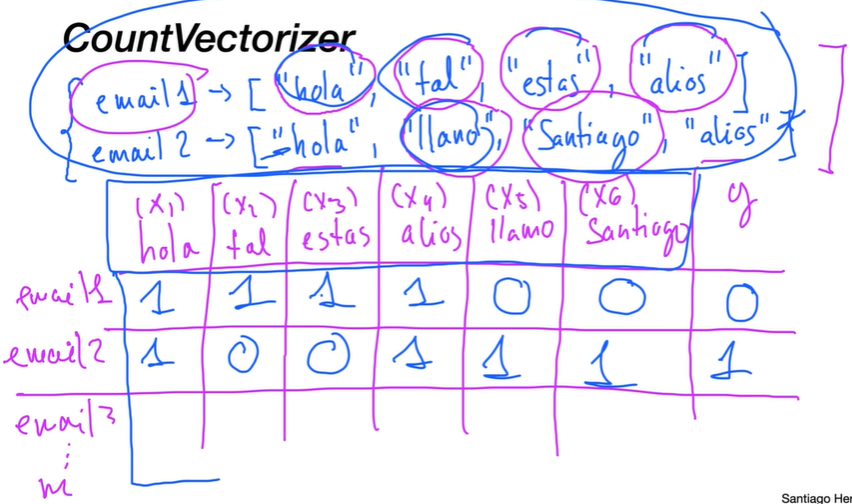 CountVectorizer
email1 → ["hola", "tal", "estas", "alios"]
email2 → ["hola", "llamo", "Santiago", "alios"]
(x1) (x2) (x3) (x4) (x5) (x6) y
hola tal estas alios llamo Santiago
email1 1 1 1 1 0 0 0
email2 1 0 0 1 1 1 1
email3
⋮
m
Santiago Her